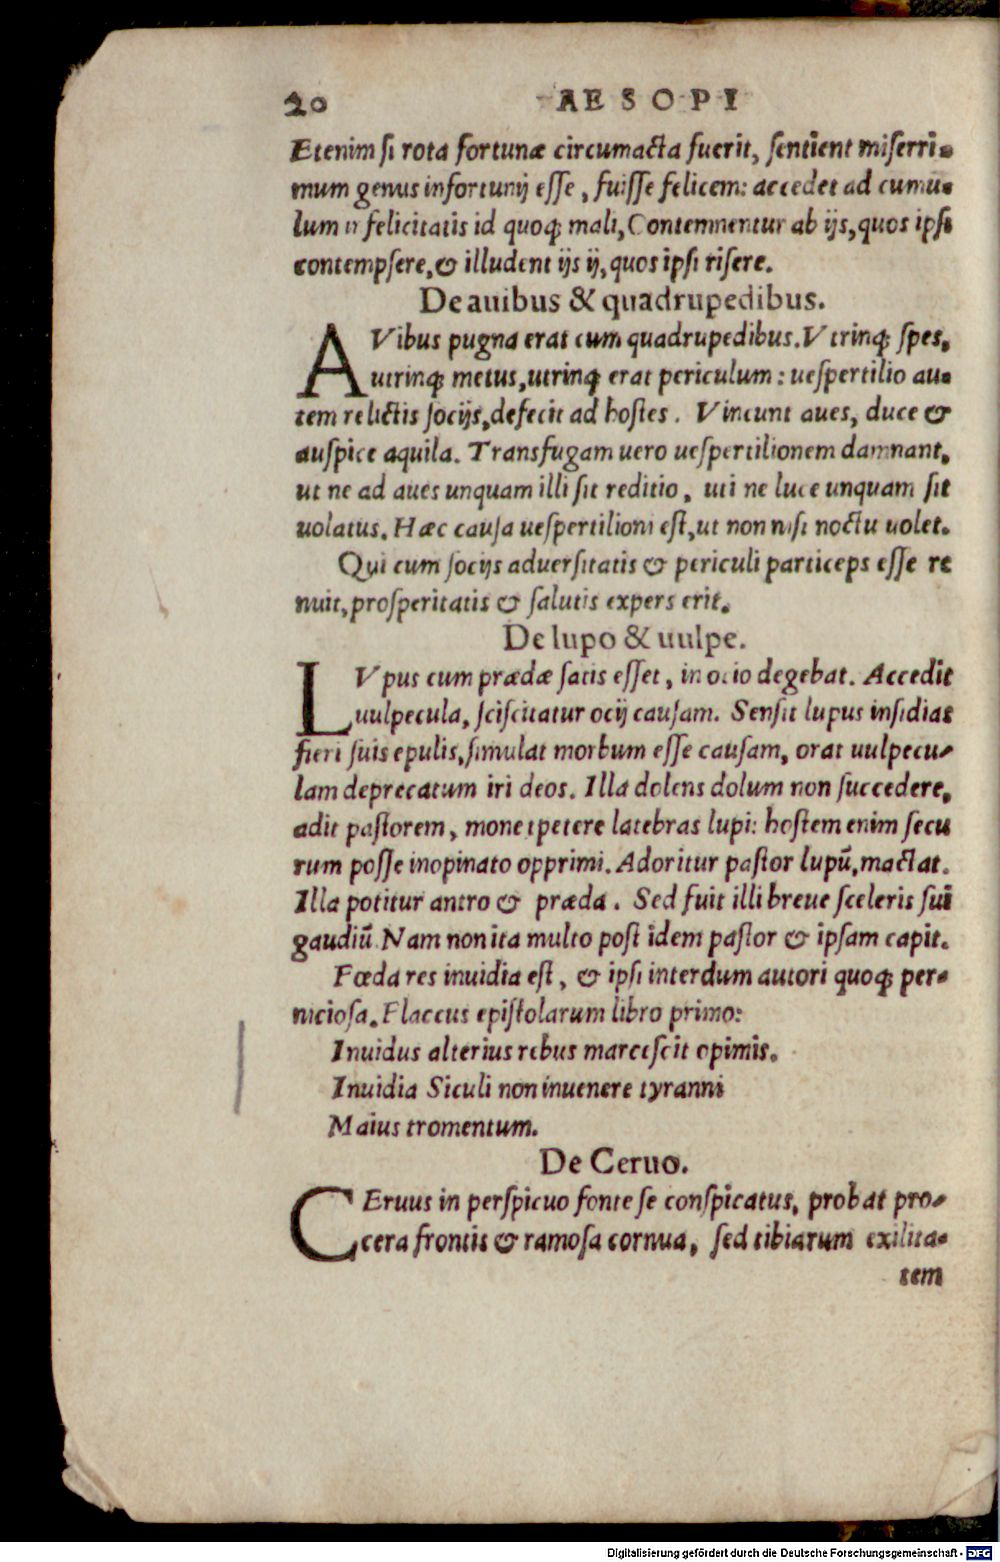 20 AESOPI
Etenim si rota fortunæ circumacta fuerit, sentient miserri-
mum genus infortunij esse, fuisse felicem: accedet ad cumu-
lum infelicitatis id quoq; mali, Contemnentur ab ijs, quos ipsi
contempsere, & illudent ijs ij, quos ipsi risere.
De auibus & quadrupedibus.
AVibus pugna erat cum quadrupedibus. Vtrinq; spes,
utrinq; metus, utrinq; erat periculum: uespertilio au-
tem relictis socijs, defecit ad hostes. Vincunt aues, duce &
auspice aquila. Transfugam uero uespertilionem damnant,
ut ne ad aues unquam illi sit reditio, uti ne luce unquam sit
uolatus. Hæc causa uespertilioni est, ut non nisi noctu uolet.
Qui cum socijs aduersitatis & periculi particeps esse re
nuit, prosperitatis & salutis expers erit.
De lupo & uulpe.
LVpus cum prædæ satis esset, in ocio degebat. Accedit
uulpecula, sciscitatur ocij causam. Sensit lupus insidias
fieri suis epulis, simulat morbum esse causam, orat uulpecu-
lam deprecatum iri deos. Illa dolens dolum non succedere,
adit pastorem, monet petere latebras lupi: hostem enim secu
rum posse inopinato opprimi. Adoritur pastor lupũ, mactat.
Illa potitur antro & præda. Sed fuit illi breue sceleris sui
gaudiũ. Nam non ita multo post idem pastor & ipsam capit.
Fœda res inuidia est, & ipsi interdum autori quoq; per-
niciosa. Flaccus epistolarum libro primo:
Inuidus alterius rebus marcescit opimis.
Inuidia Siculi non inuenere tyranni
Maius tromentum.
De Ceruo.
CEruus in perspicuo fonte se conspicatus, probat pro-
cera frontis & ramosa cornua, sed tibiarum exilita-
tem
Digitalisierung gefördert durch die Deutsche Forschungsgemeinschaft - DFG